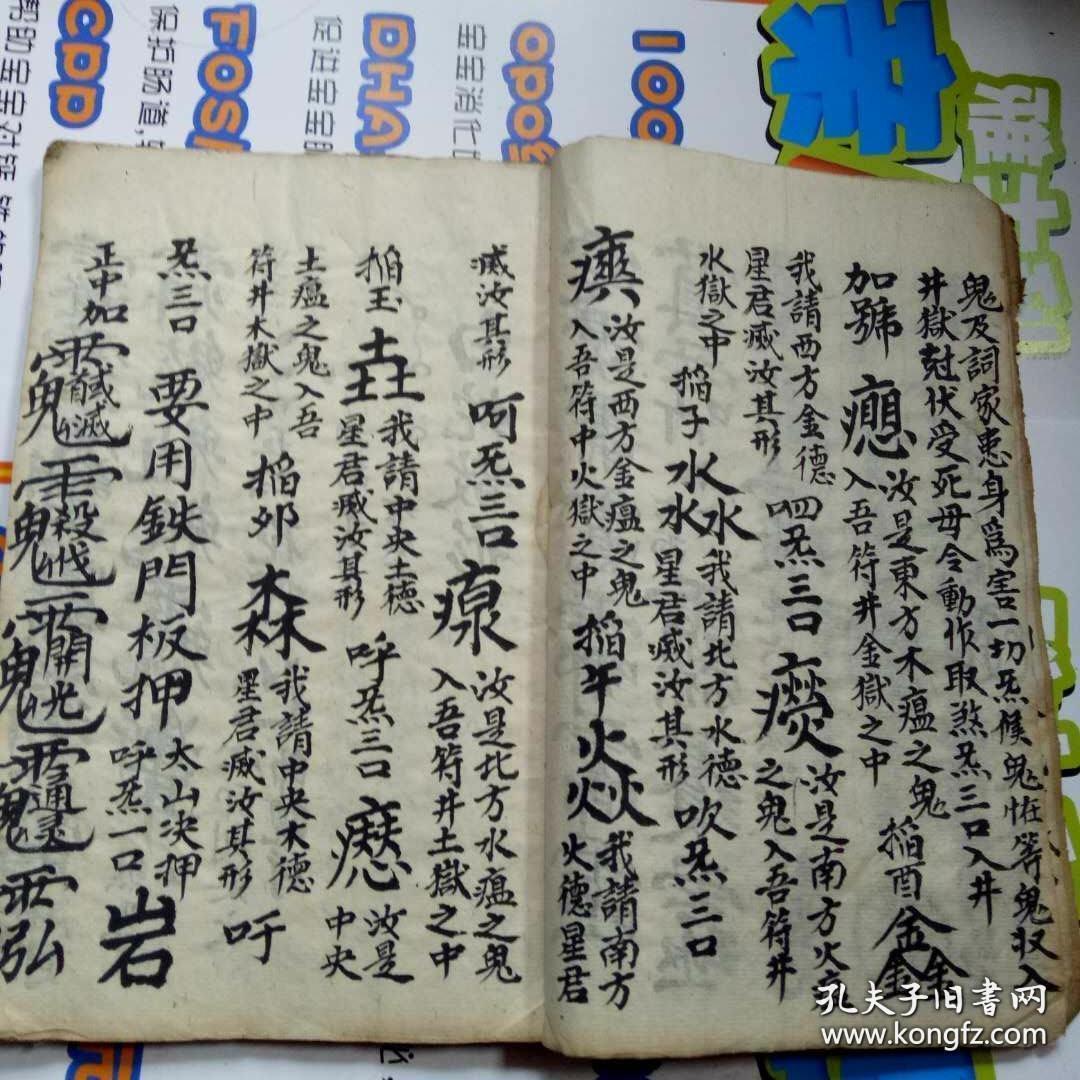 鬼及詞家患身為害一切炁候鬼怪等鬼収入
井獄尅伏受死毋令動作取煞炁三口入井
加號
汝是東方木瘟之鬼
入吾符井金獄之中
掐酉
鑫
我請西方金德
星君滅汝其形
呬炁三口
汝是南方火瘟
之鬼入吾符井
水獄之中
掐子
淼
我請北方水德
星君滅汝其形
吹炁三口
汝是西方金瘟之鬼
入吾符中火獄之中
掐午
焱
我請南方
火德星君
滅汝其形
呵炁三口
汝是北方水瘟之鬼
入吾符井土獄之中
掐玉
垚
我請中央土德
星君滅汝其形
呼炁三口
汝是
中央
土瘟之鬼入吾
符井木獄之中
掐夘
森
我請中央木德
星君滅汝其形
吁
炁三口
要用鉄門板押
太山决押
呼炁一口
岩
正中加
孔夫子旧书网
www.kongfz.com
100
OPO
DHA
FOS
CPP
宝宝消化
促进宝宝
保护肠道,
帮助宝宝对